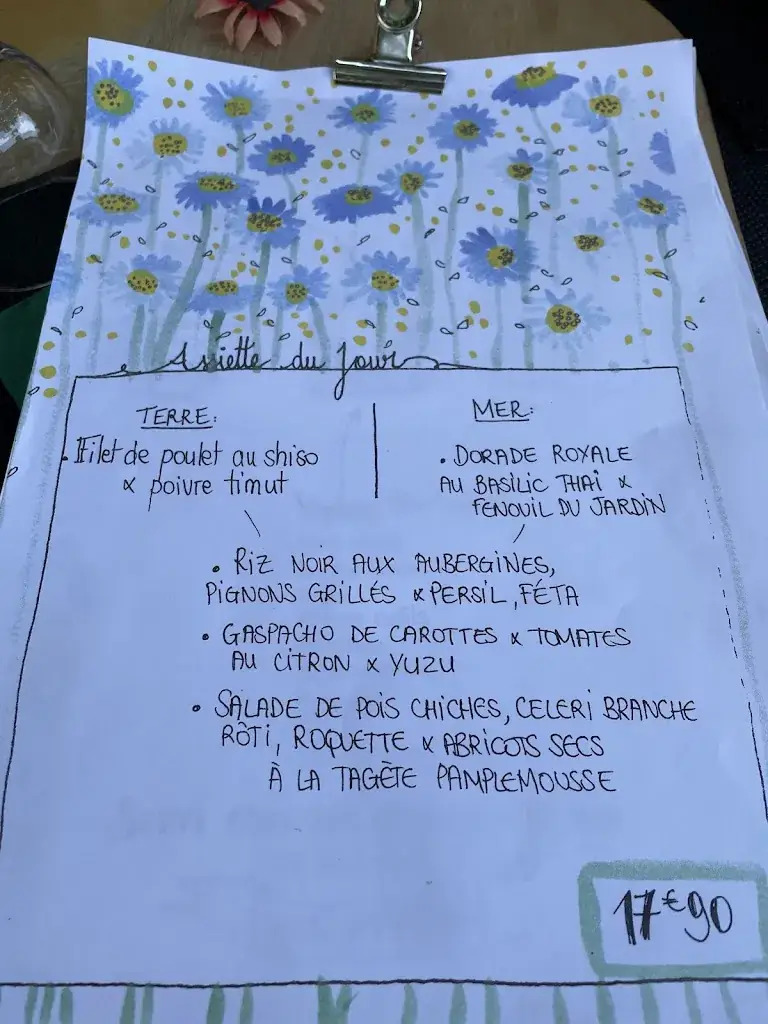 Assiette du Jour
TERRE:
• Filet de poulet au shiso
x poivre timut
MER:
• DORADE ROYALE
AU BASILIC THAI x
FENOUIL DU JARDIN
• RIZ NOIR AUX AUBERGINES,
PIGNONS GRILLÉS x PERSIL, FÉTA
• GASPACHO DE CAROTTES x TOMATES
AU CITRON x YUZU
• SALADE DE POIS CHICHES, CELERI BRANCHE
RÔTI, ROQUETTE x ABRICOTS SECS
À LA TAGÈTE PAMPLEMOUSSE
17€90